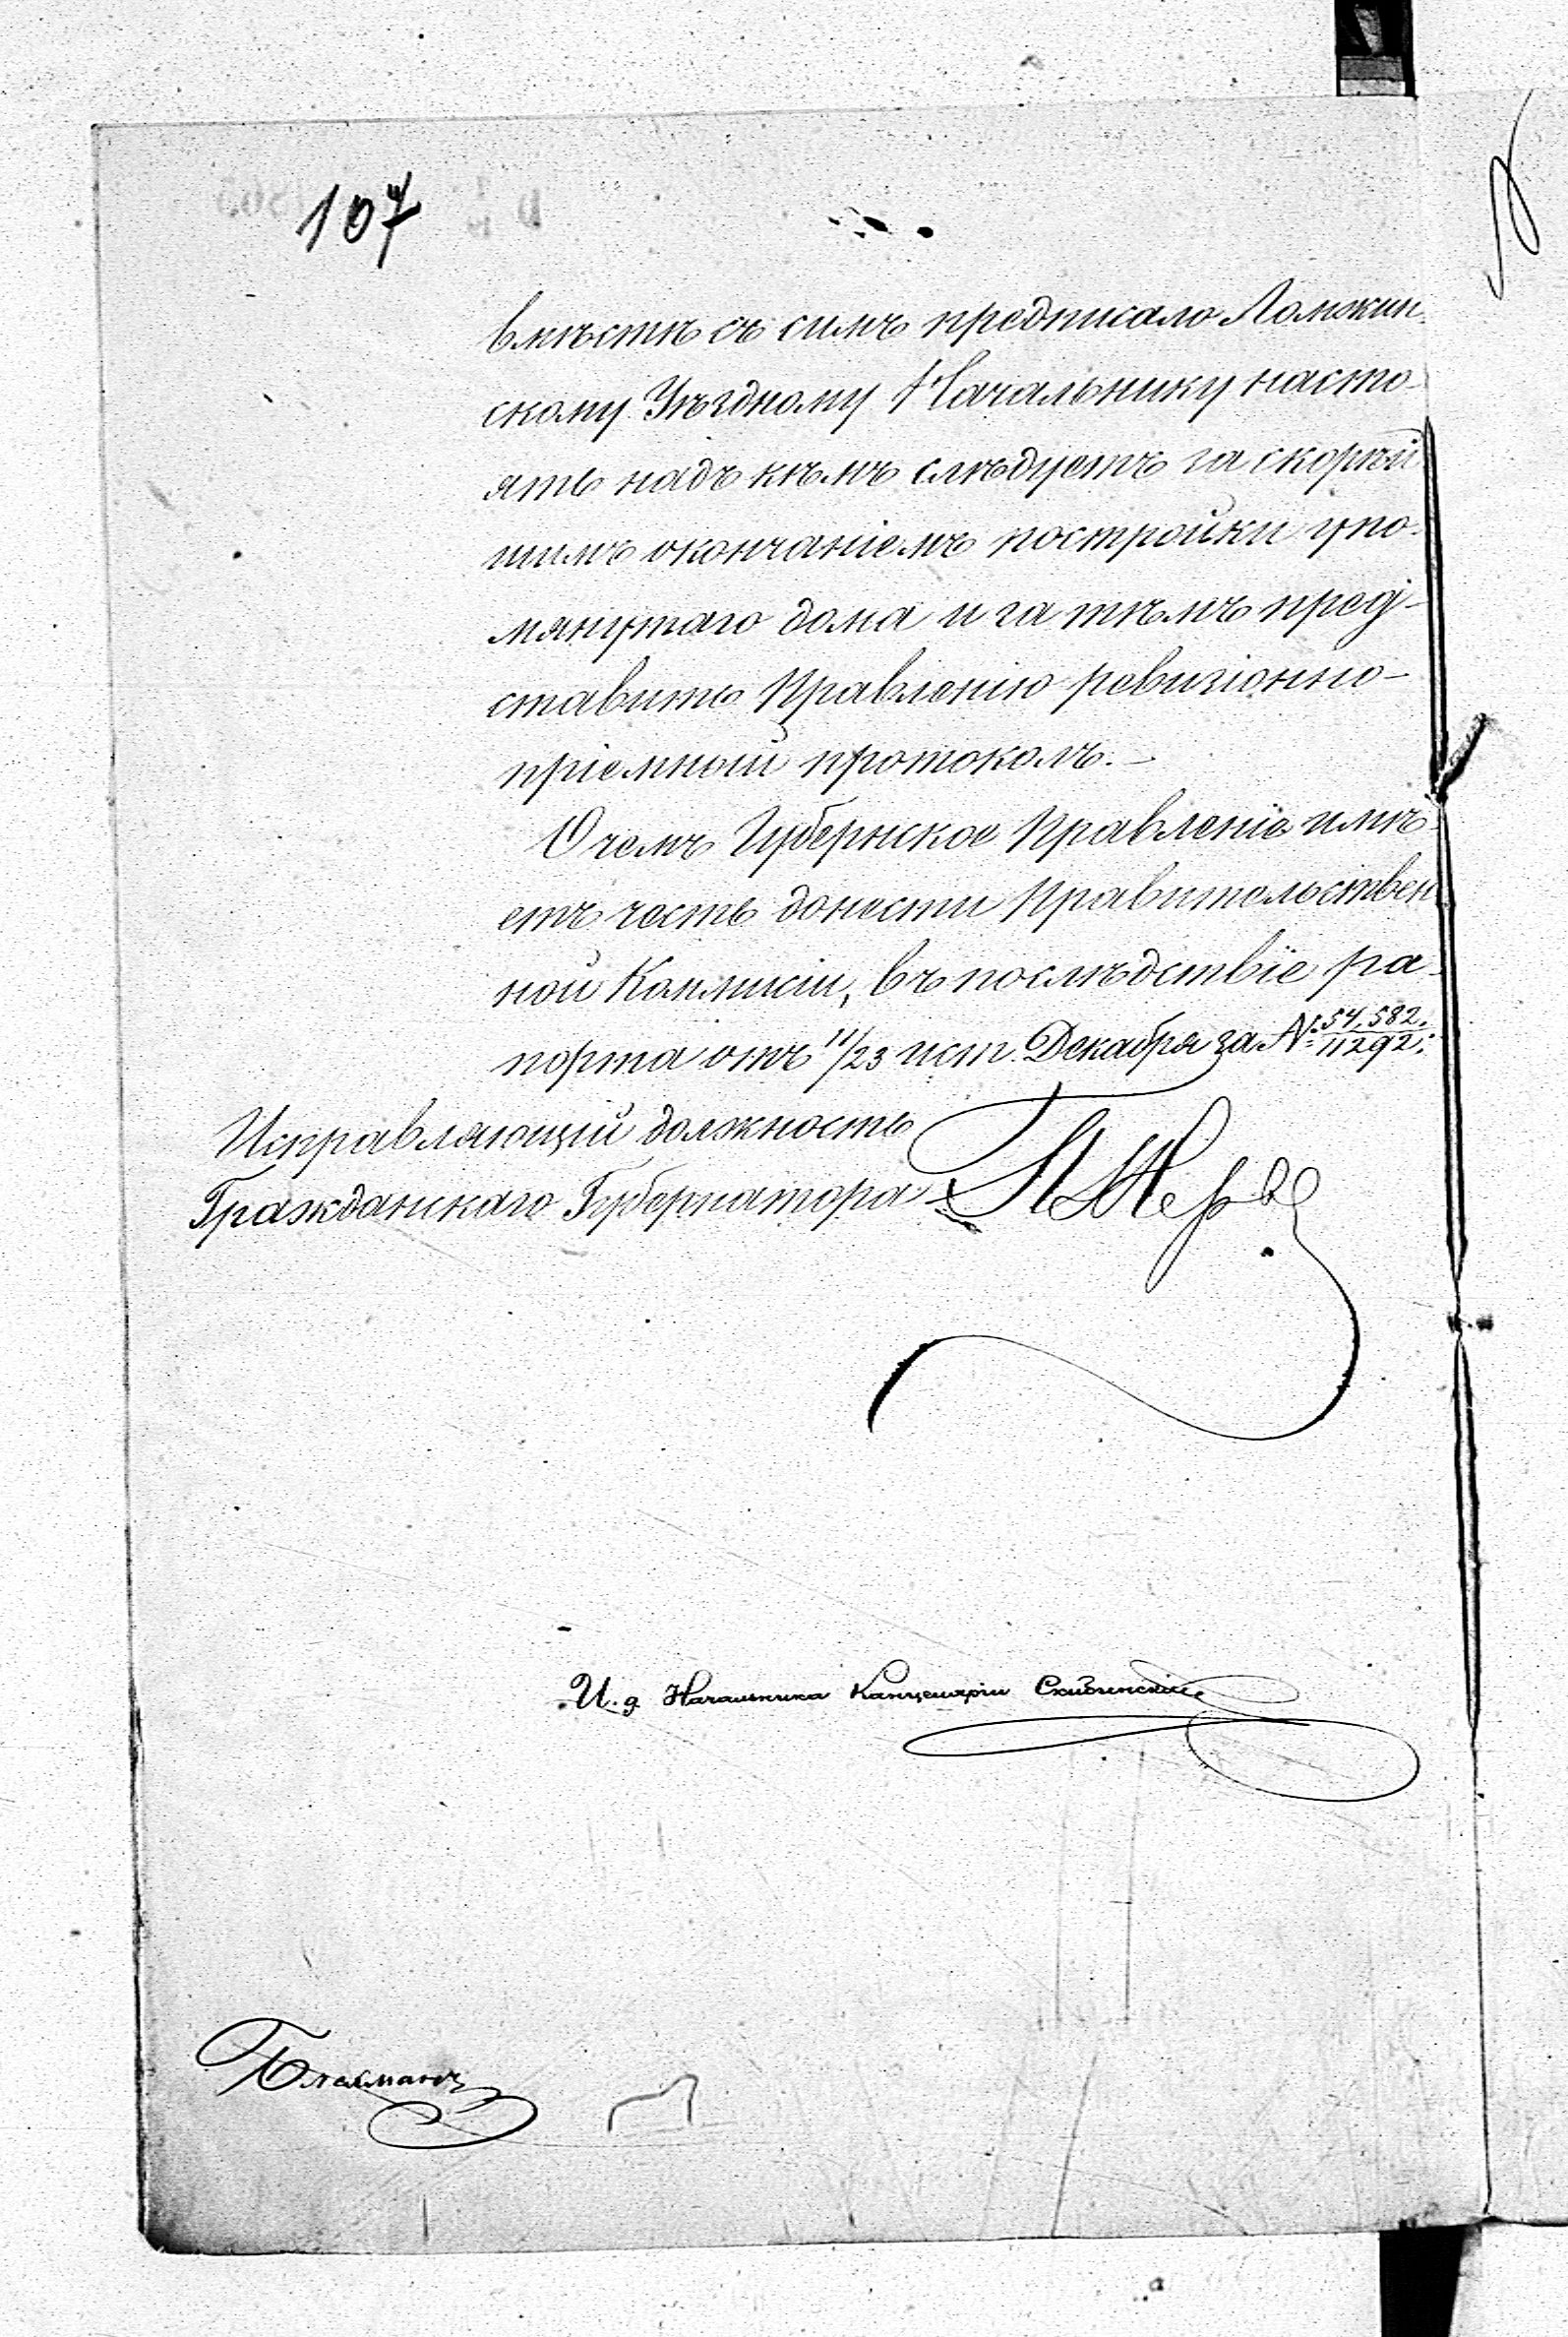 107
вмѣстѣ съ симъ предписало Ломжин-
скому Уѣздному Начальнику насто-
ять надъ кѣмъ слѣдуетъ за скорѣй
шимъ окончаніемъ постройки упо-
мянутаго дома и за тѣмъ пред-
ставить Правленію ревизіонно-
пріемный протоколъ.—
О чемъ Губернское Правленіе имѣ-
етъ честь донести Правительствен
ной Коммисіи, въ послѣдствіе ра-
порта отъ 11/23 ист. Декабря за №: 54,582./11292:
Исправляющій должность
Гражданскаго Губернатора
И. д. Начальника Канцеляріи